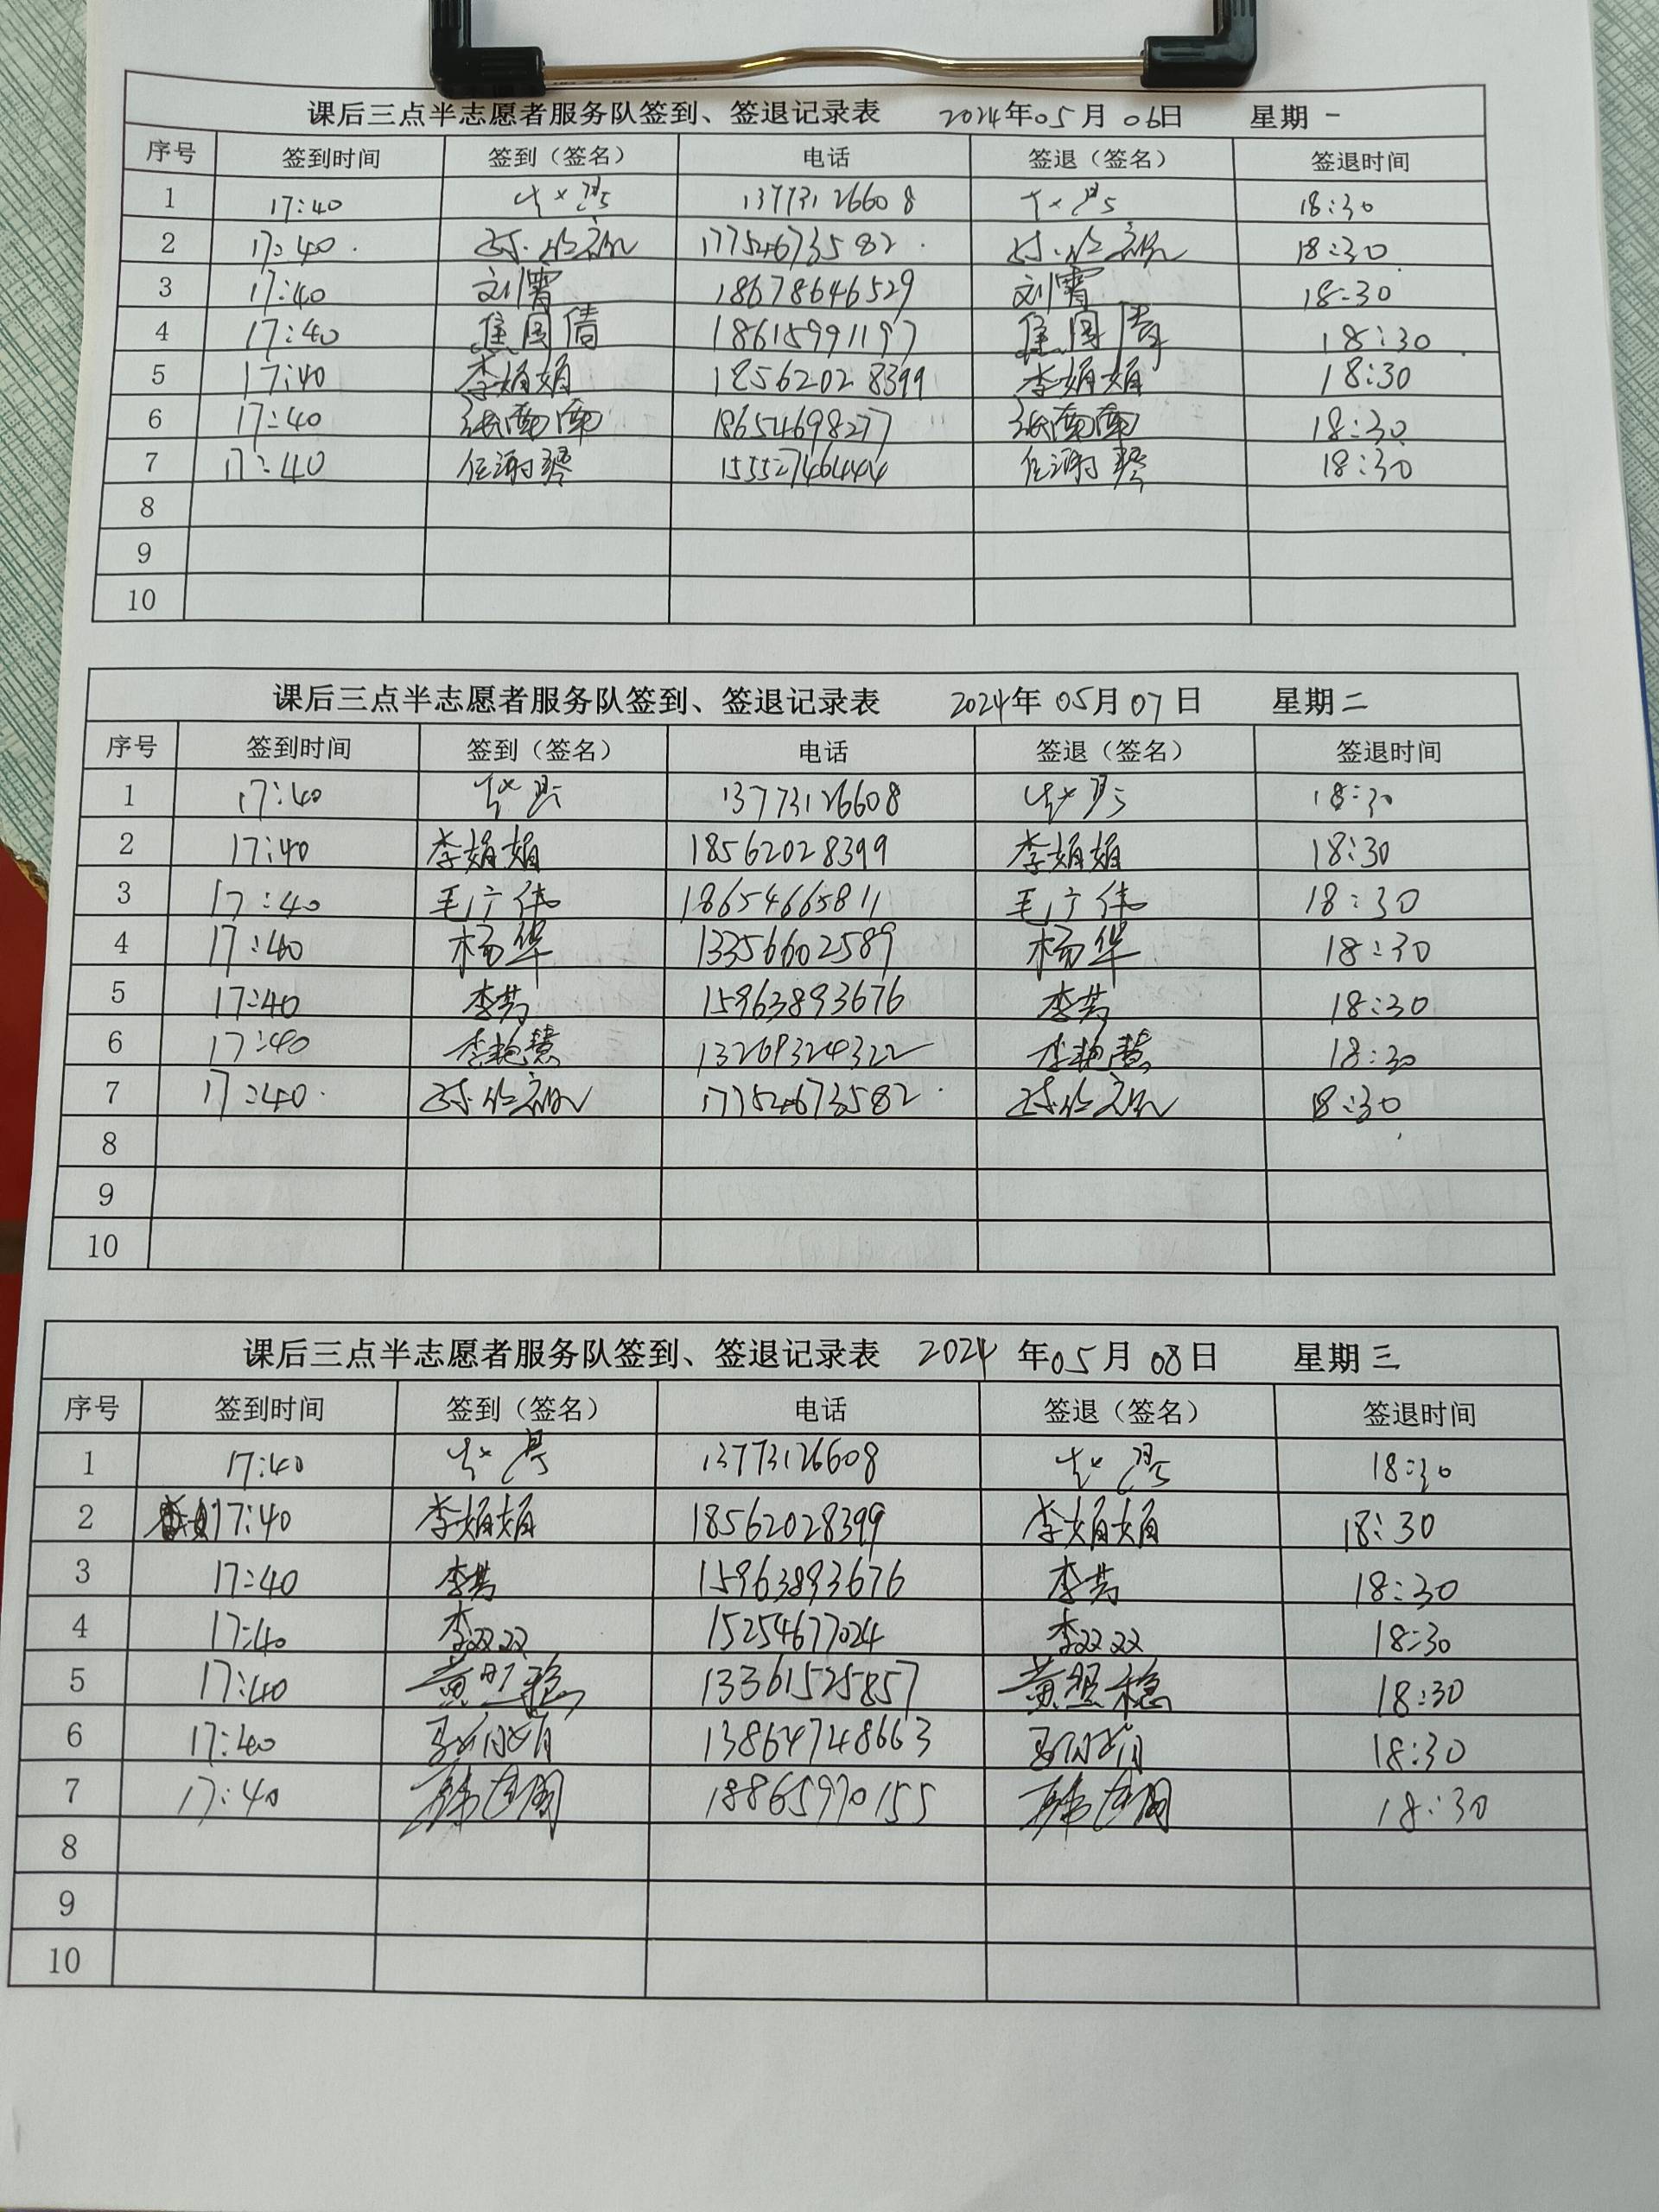 课后三点半志愿者服务队签到、签退记录表 2024年05月06日 星期一
序号 签到时间 签到（签名） 电话 签退（签名） 签退时间
1 17:40 13773126608 18:30
2 17:40 17754673582 18:30
3 17:40 刘霄 18678646529 刘霄 18:30
4 17:40 焦国倩 18615991197 焦国倩 18:30
5 17:40 李娟娟 18562028399 李娟娟 18:30
6 17:40 张南南 18654698277 张南南 18:30
7 17:40 15552746444 18:30
8
9
10
课后三点半志愿者服务队签到、签退记录表 2024年05月07日 星期二
序号 签到时间 签到（签名） 电话 签退（签名） 签退时间
1 17:40 13773126608 18:30
2 17:40 李娟娟 18562028399 李娟娟 18:30
3 17:40 毛广伟 18654665811 毛广伟 18:30
4 17:40 杨华 13356602589 杨华 18:30
5 17:40 李芳 15963893676 李芳 18:30
6 17:40 李艳慧 13269324322 李艳慧 18:30
7 17:40 17754673582 18:30
8
9
10
课后三点半志愿者服务队签到、签退记录表 2024年05月08日 星期三
序号 签到时间 签到（签名） 电话 签退（签名） 签退时间
1 17:40 13773126608 18:30
2 17:40 李娟娟 18562028399 李娟娟 18:30
3 17:40 李芳 15963893676 李芳 18:30
4 17:40 李双双 15254677024 李双双 18:30
5 17:40 黄照稳 13361525857 黄照稳 18:30
6 17:40 13864748663 18:30
7 17:40 18865970155 18:30
8
9
10